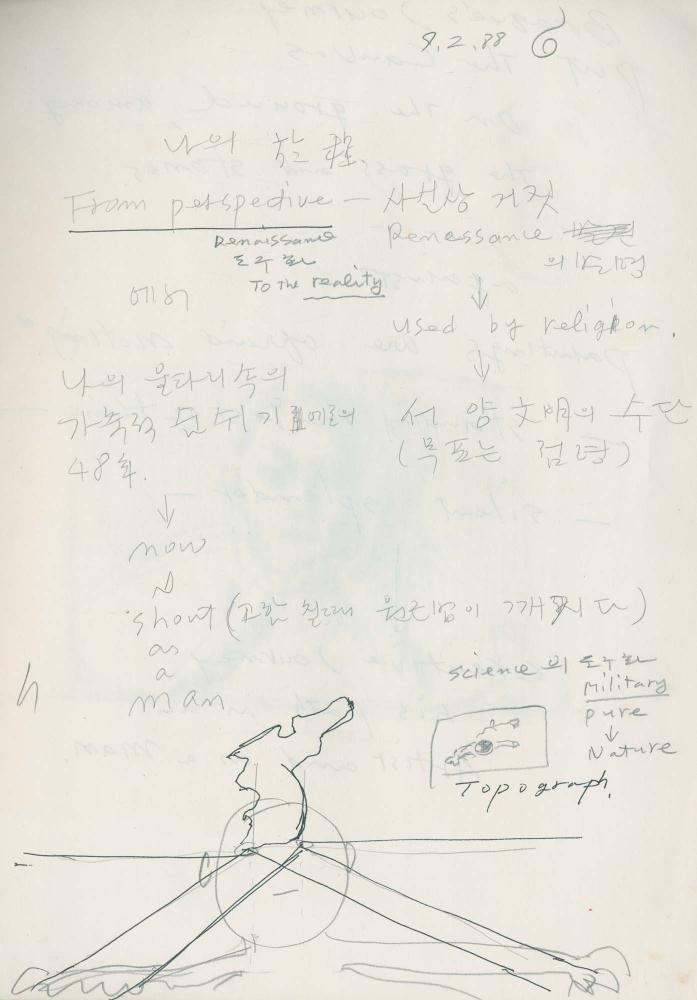 9.2.88
나의 旅程.
From perspective — 사실상 거짓
Renaissance
도구화
To the reality
Renessance
의 발명
에서
used by religion.
나의 울타리 속의
가축적 숨쉬기 에로의
48화.
서양 文明의 수단
(목표는 점령)
now
shout (고함 칠때 원근법이 깨진다)
as
a
man
science의 도구화
Military
pure
Nature
Topograph.